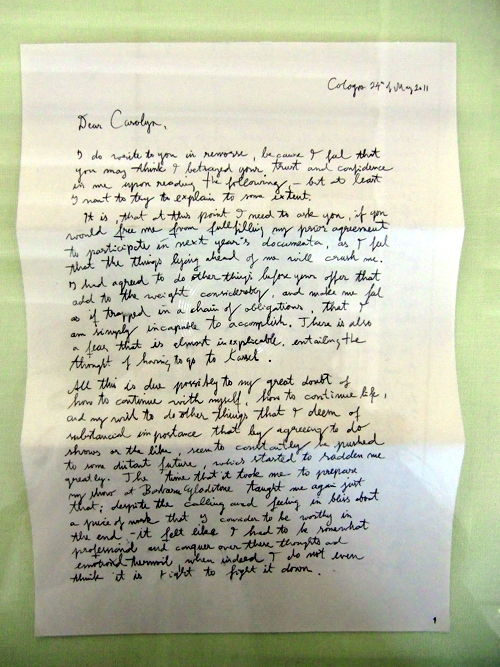 Cologne 24th of May 2011
Dear Carolyn,
I do write to you in remorse, because I feel that
you may think I betrayed your trust and confidence
in me upon reading the following, – but at least
I want to try to explain to some extent.
It is, that at this point I need to ask you, if you
would free me from fulfilling my prior agreement
to participate in next year's documenta, as I feel
that the things lying ahead of me will crush me.
I had agreed to do other things before your offer that
add to the weight considerably, and make me feel
as if trapped in a chain of obligations, that I
am simply incapable to accomplish. There is also
a fear that is almost inexplicable, entailing the
thought of having to go to Kassel.
All this is due possibly to my great doubt of
how to continue with myself, how to continue life,
and my wish to do other things that I deem of
substancial importance that by agreeing to do
shows or the like, seem to constantly be pushed
to some distant future, which started to sadden me
greatly. The time that it took me to prepare
my show at Barbara Gladstone taught me again just
that; despite the calling and feeling in bliss about
a piece of work that I consider to be worthy in
the end – it felt like I had to be somewhat
professional and conquer over these thoughts and
emotional when indeed I do not even
think it is right to fight it down.
1